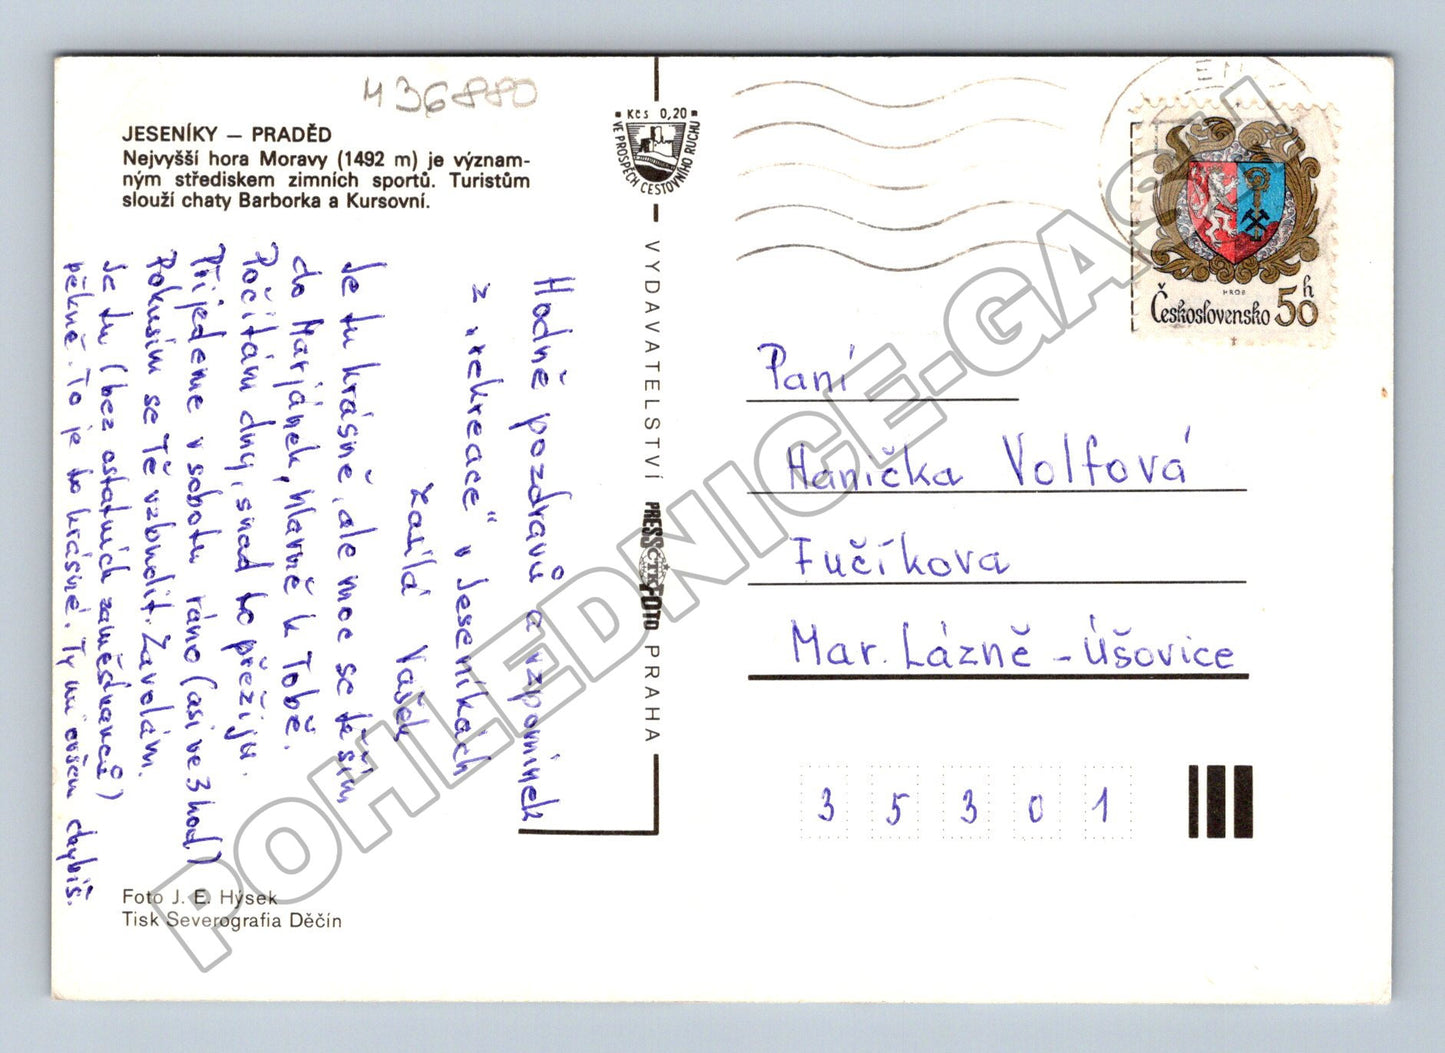 436880
JESENÍKY — PRADĚD
Nejvyšší hora Moravy (1492 m) je význam-
ným střediskem zimních sportů. Turistům
slouží chaty Barborka a Kursovní.
Kčs 0,20
VE PROSPĚCH CESTOVNÍHO RUCHU
Hodně pozdravů a vzpomínek
z „rekreace“ v Jeseníkách
zasílá Vašek
Je tu krásně, ale moc se těším
do Marjánek, hlavně k Tobě.
Počítám dny, snad to přežiju.
Přijedeme v sobotu ráno (asi ve 3 hod)
Pokusím se Tě vzbudit. Zavolám.
Je tu (bez ostatních zaměstnanců)
pěkně. To je to krásné. Ty mi ovšem chybíš.
Foto J. E. Hýsek
Tisk Severografia Děčín
VYDAVATELSTVÍ PRESSFOTO PRAHA
ČTK
HROB
Československo 50 h
Paní
Hanička Volfová
Fučíkova
Mar. Lázně - Úšovice
35301
POHLEDNICE-GASH